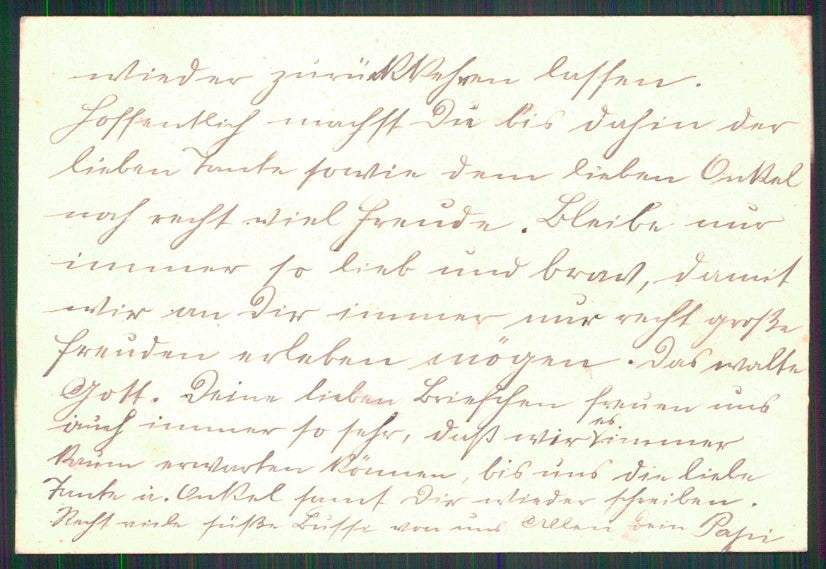 wieder zurückkehren lassen.
Hoffentlich machst Du bis dahin der
lieben Tante sowie dem lieben Onkel
noch recht viel Freude. Bleibe nur
immer so lieb und brav, damit
wir an Dir immer nur recht große
Freuden erleben mögen. Das walte
Gott. Deine lieben Briefchen freuen uns
auch immer so sehr, daß wir es immer
kaum erwarten können, bis uns die liebe
Tante u. Onkel samt Dir wieder schreiben.
Recht viele süße Bussi von uns Allen Dein Papi